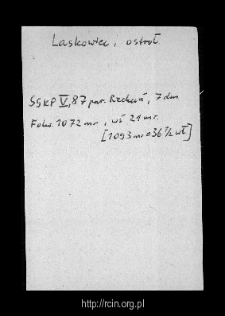 Laskowiec, ostroł.
SGKP V, 87 par. Rzekuń, 7 dm
Folw. 1072 mr., wś 21 mr.
[1093 mr = 36 ½ wł]
http://rcin.org.pl